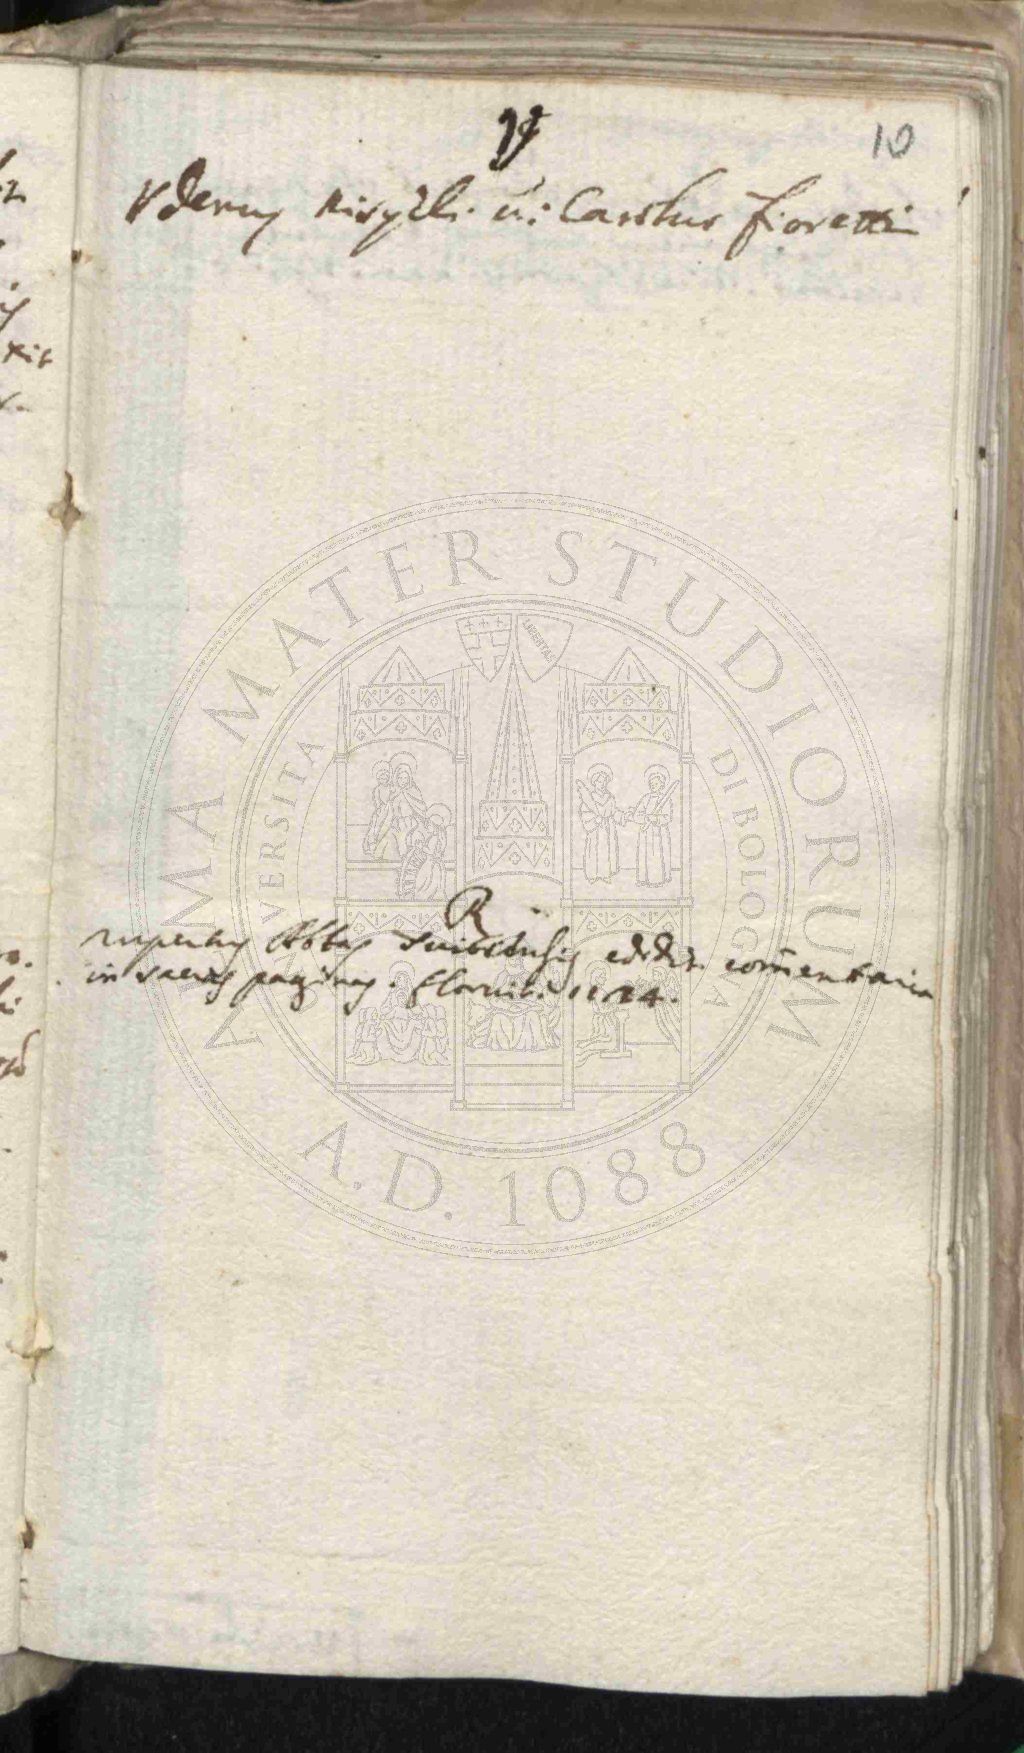 V
10
Vdenus Nisyeli. u: Carolus fioretti
R
rupertus Abbas Tuitiensis edidit com̃entaria
in sacras paginas. floruit. 1124.
ALMA MATER STUDIORUM
A.D. 1088
UNIVERSITÀ DI BOLOGNA
LIBERTAS